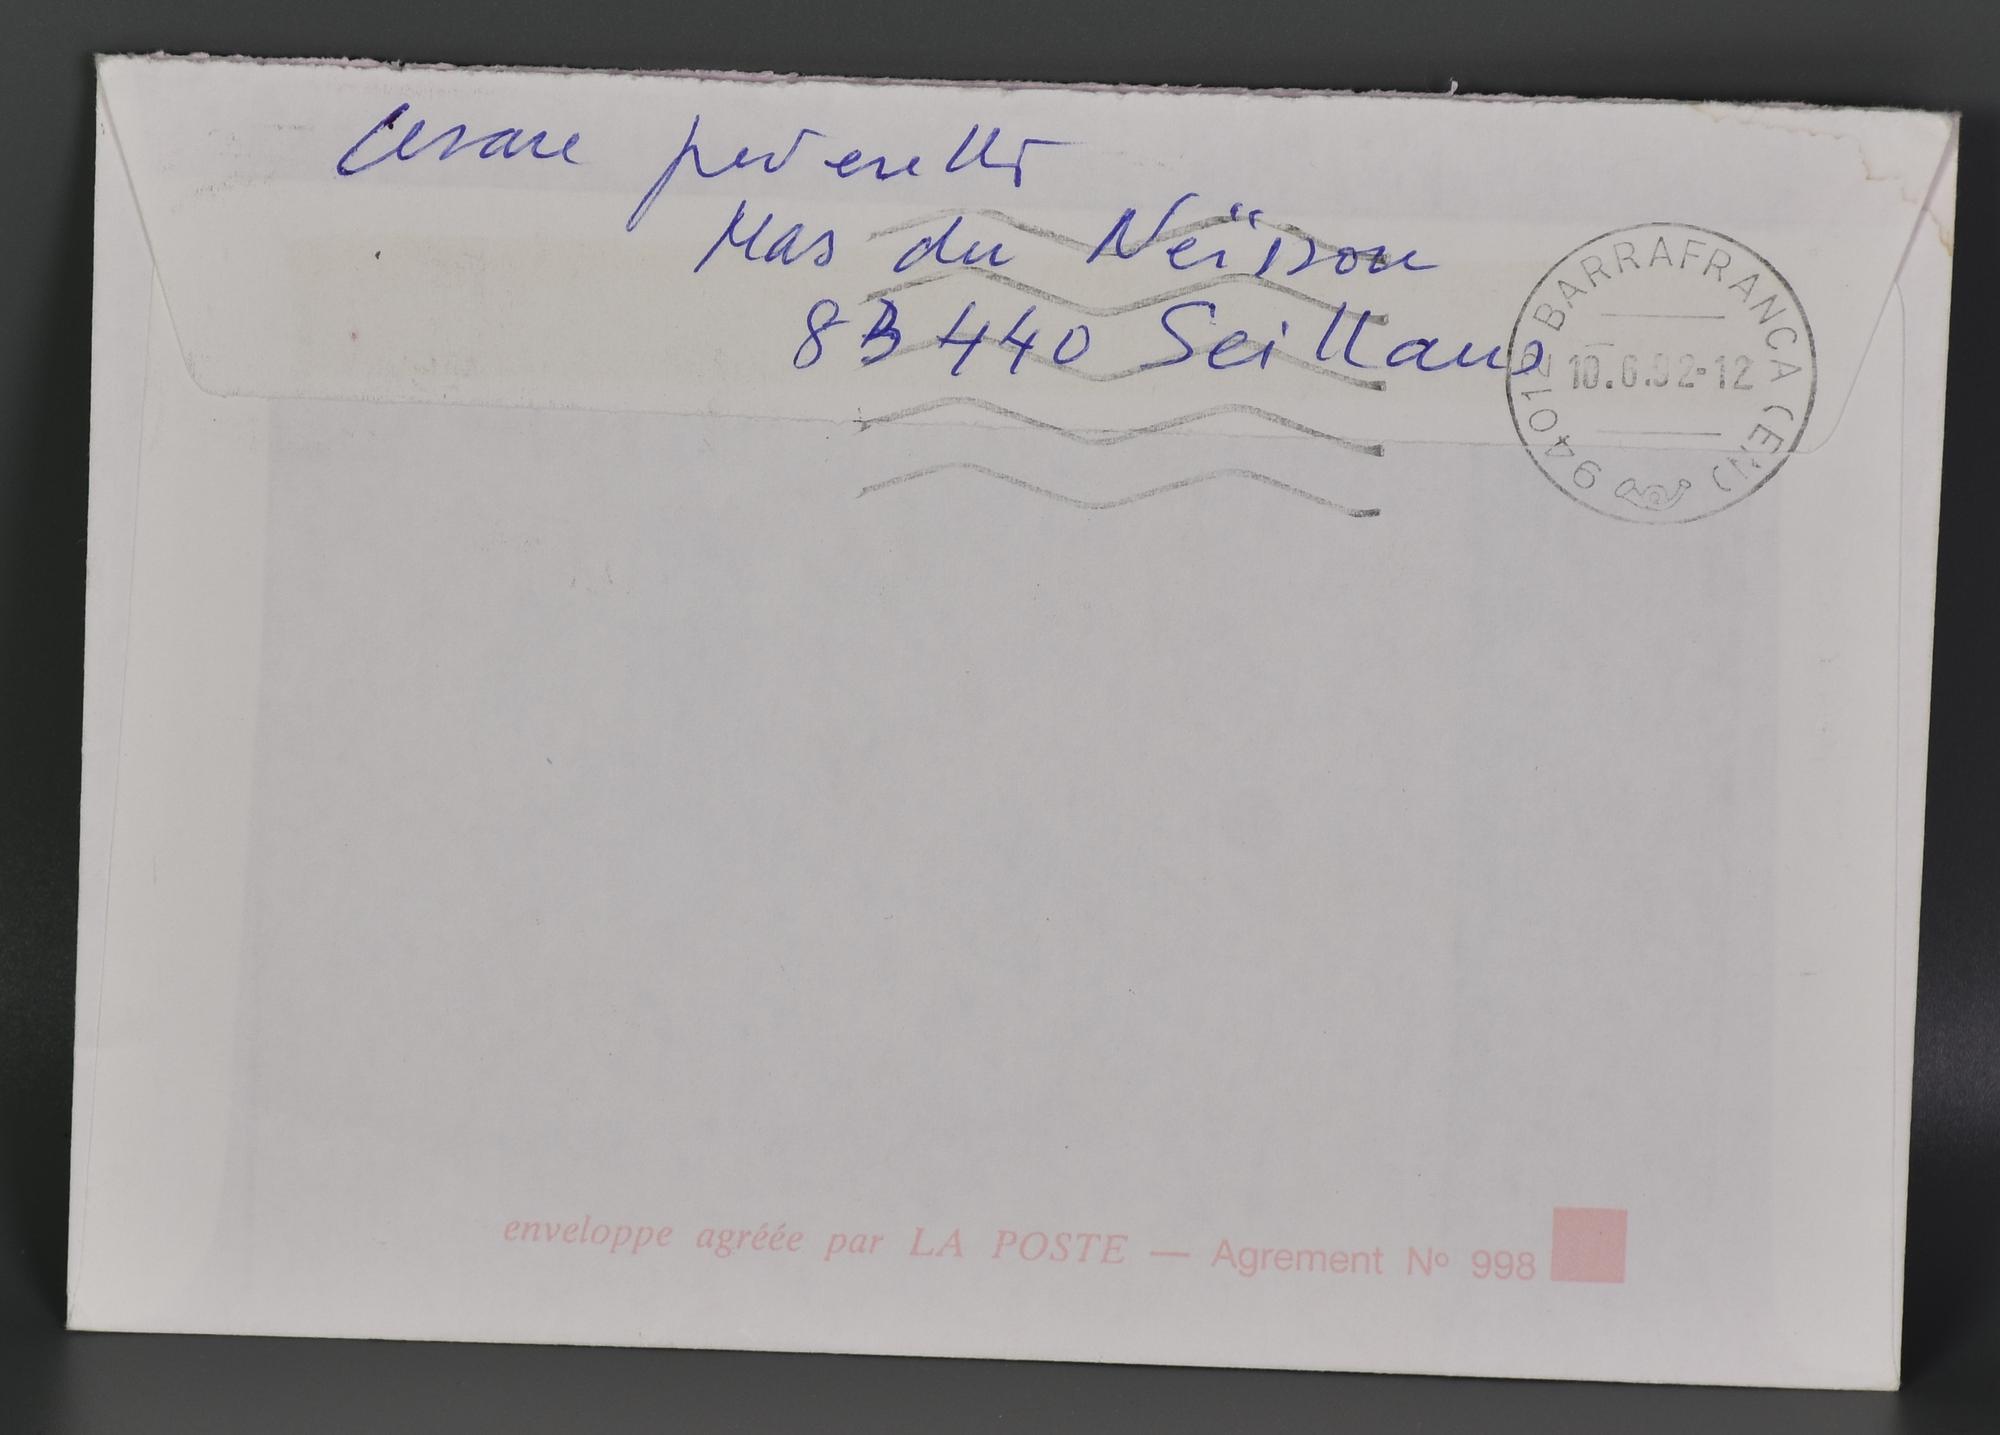 Cesare peverelli
Mas du Neïsson
83440 Seillans
94012 BARRAFRANCA (EN)
10.6.92-12
enveloppe agréée par LA POSTE — Agrement Nº 998